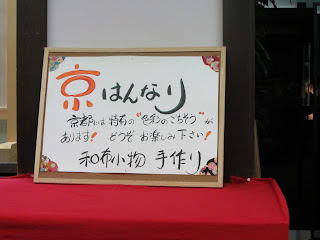 京はんなり
京都には特有の"色彩のごちそう"が
あります!どうぞお楽しみ下さい!
和布小物 手作り